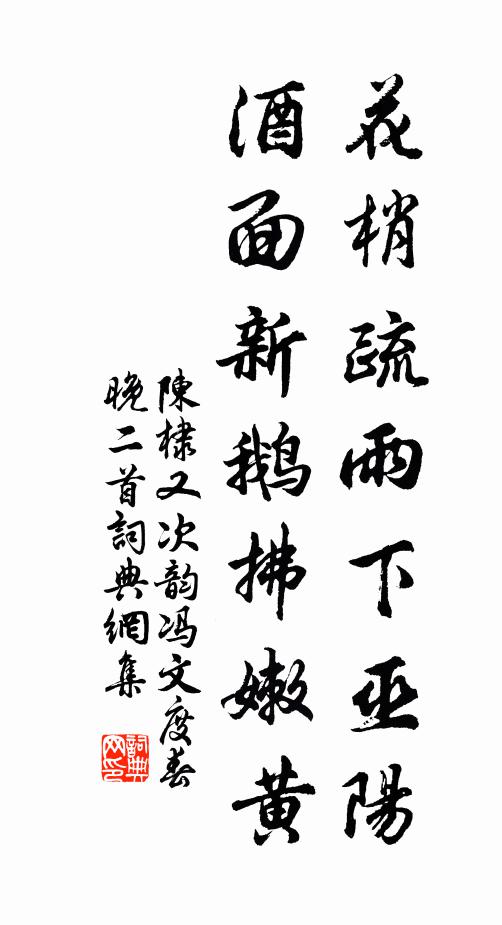 花梢疏雨下巫陽
酒面新鹅拂嫩黄
陳棣又次韵冯文度春
晚二首詞典網集
詞典
网印